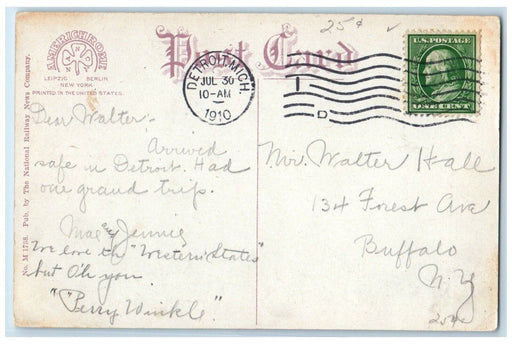 25¢
Post Card
AMERICHROME
N Co
LEIPZIG BERLIN
NEW YORK
PRINTED IN THE UNITED STATES.
No. M 1758. Pub. by The National Railway News Company.
DETROIT, MICH.
JUL 30
10-AM
1910
U.S. POSTAGE
ONE CENT
Dear Walter,-
Arrived
safe in Detroit. Had
one grand trip.
Mae and Jennie
We love the "Western States"
but Oh you
"Perry Winkle".
Mr. Walter Hall
134 Forest Ave
Buffalo
N. Y.